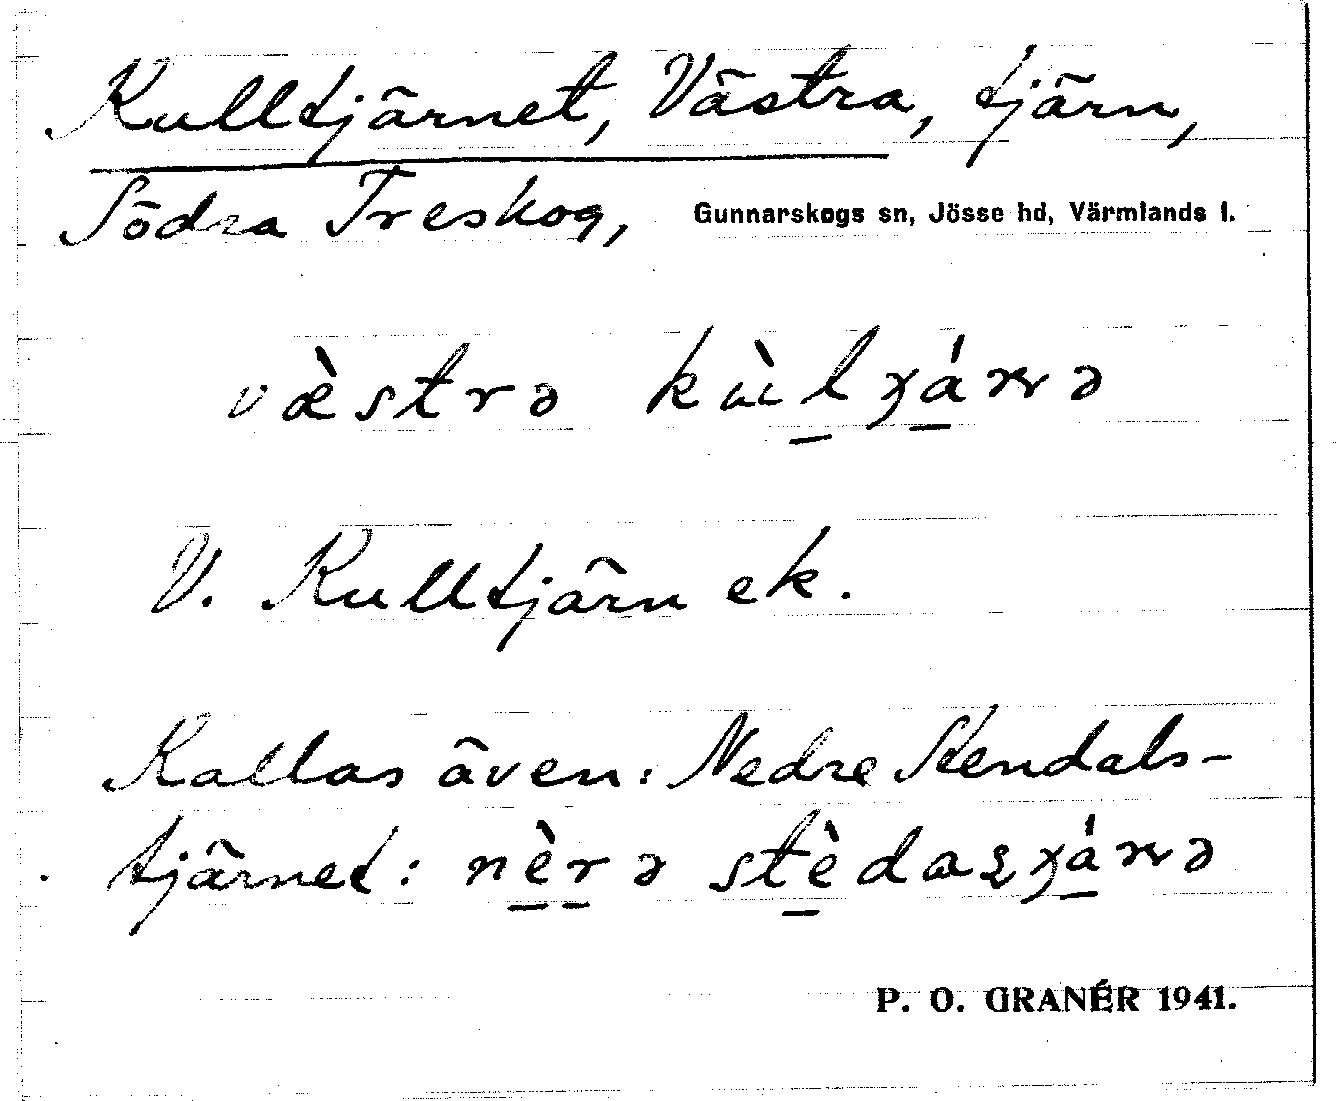 Kulltjärnet, Västra, tjärn,
Södra Treskog, Gunnarskogs sn, Jösse hd, Värmlands l.
væ̀strə
V. Kulltjärn ek.
Kallas även: Nedre Stendals-
tjärnet: nèrə
P. O. GRANÉR 1941.